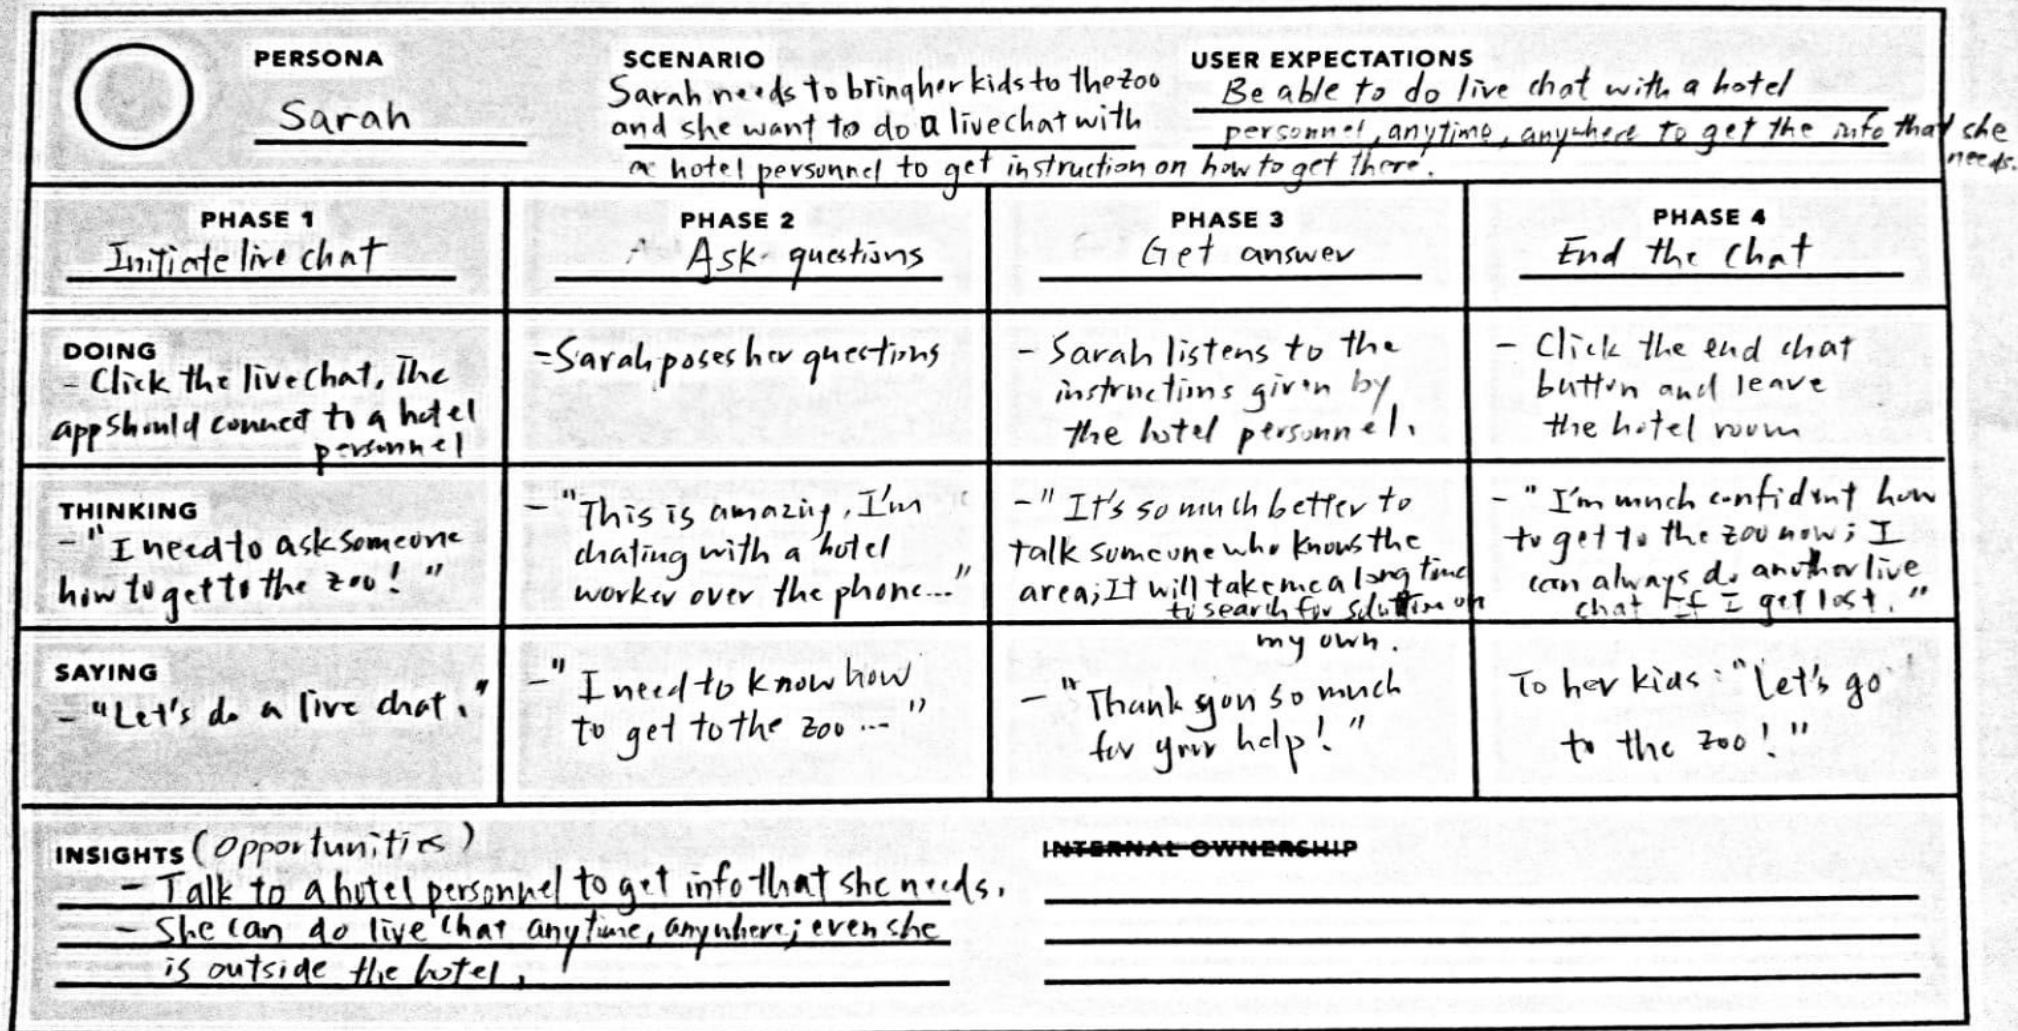 PERSONA
Sarah
SCENARIO
Sarah needs to bring her kids to the zoo
and she want to do a live chat with
a hotel personnel to get instruction on how to get there.
USER EXPECTATIONS
Be able to do live chat with a hotel
personnel, anytime, anywhere to get the info that she
needs.
PHASE 1
Initiate live chat
PHASE 2
Ask questions
PHASE 3
Get answer
PHASE 4
End the chat
DOING
- Click the live chat. The
app should connect to a hotel
personnel
- Sarah poses her questions
- Sarah listens to the
instructions given by
the hotel personnel.
- Click the end chat
button and leave
the hotel room
THINKING
- "I need to ask someone
how to get to the zoo!"
- "This is amazing, I'm
chating with a hotel
worker over the phone..."
- "It's so much better to
talk someone who knows the
area; It will take me a long time
to search for solution on
my own.
- "I'm much confident how
to get to the zoo now; I
can always do another live
chat if I get lost."
SAYING
- "Let's do a live chat."
- "I need to know how
to get to the zoo ..."
- "Thank you so much
for your help!"
To her kids: "Let's go
to the zoo!"
INSIGHTS (Opportunities)
- Talk to a hotel personnel to get info that she needs.
- She can do live chat anytime, anywhere; even she
is outside the hotel.
INTERNAL OWNERSHIP